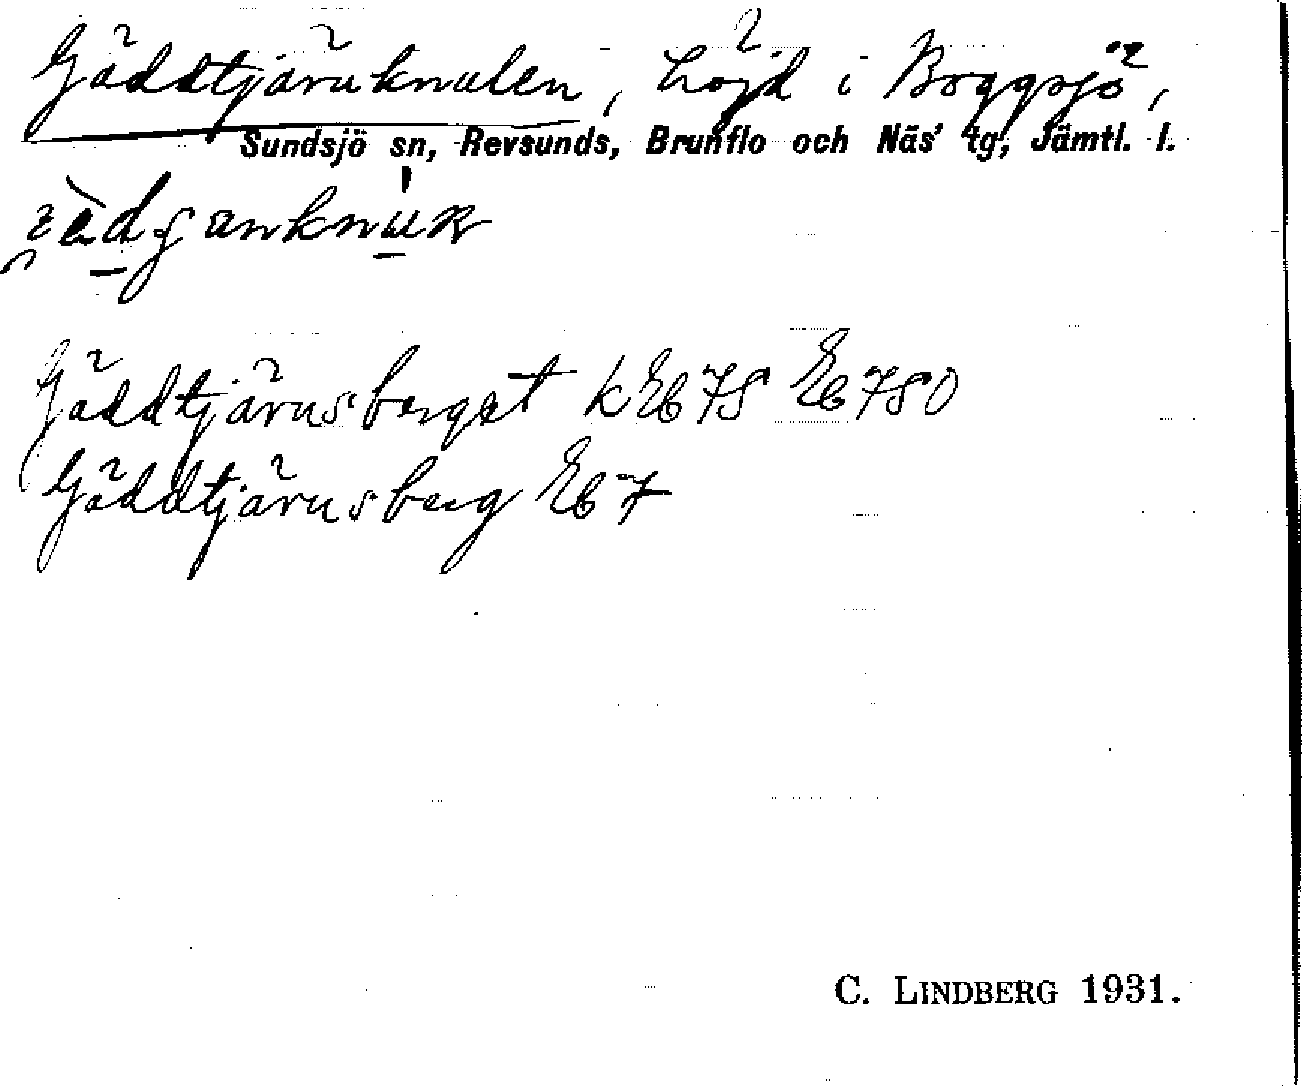 Gäddtjärnknulen, höjd i Boggsjö,
Sundsjö sn, Revsunds, Brunflo och Näs' tg, Jämtl. l.
Gäddtjärnsberget k Eb 78 Eb 780
Gäddtjärnsberg Eb 7
C. LINDBERG 1931.